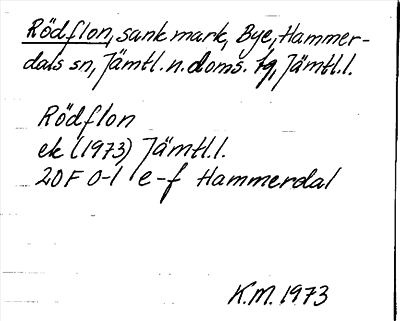 Rödflon, sank mark, Bye, Hammer-
dals sn, Jämtl. n. doms. fg, Jämtl. l.
Rödflon
ek (1973) Jämtl. l.
20F 0-1 e-f Hammerdal
K.M. 1973